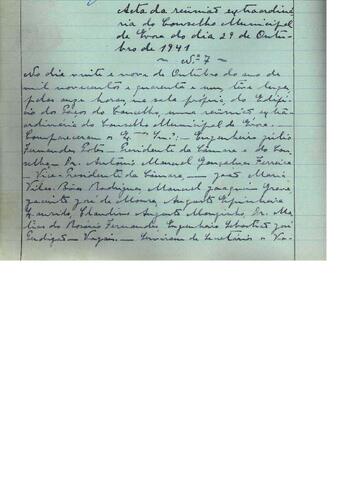 Acta da reünião extraordiná-
ria do Conselho Municipal
de Evora do dia 29 de Outu-
bro de 1941
— Nº 7 —
No dia vinte e nove de Outubro do ano de
mil novecentos e quarenta e um, teve lugar,
pelas onze horas, na sala própria do Edifí-
cio dos Paços do Concelho, uma reünião extra-
ordinária do Conselho Municipal de Evora. —
Compareceram os Exmos Snrs: — Engenheiro Júlio
Fernandes Potes — Presidente da Câmara e do Con-
selho — Dr. António Manuel Gonçalves Ferreira
— Vice-Presidente da Câmara, — José Maria
Rodrigues, Manuel Joaquim
Jacinto José de Moura, Augusto
Claudino Augusto Dr. Ma-
tias do Rosário Fernandes, Engenheiro Sebastião José
Perdigão — Vogais. — Serviram de Secretários o Vo-